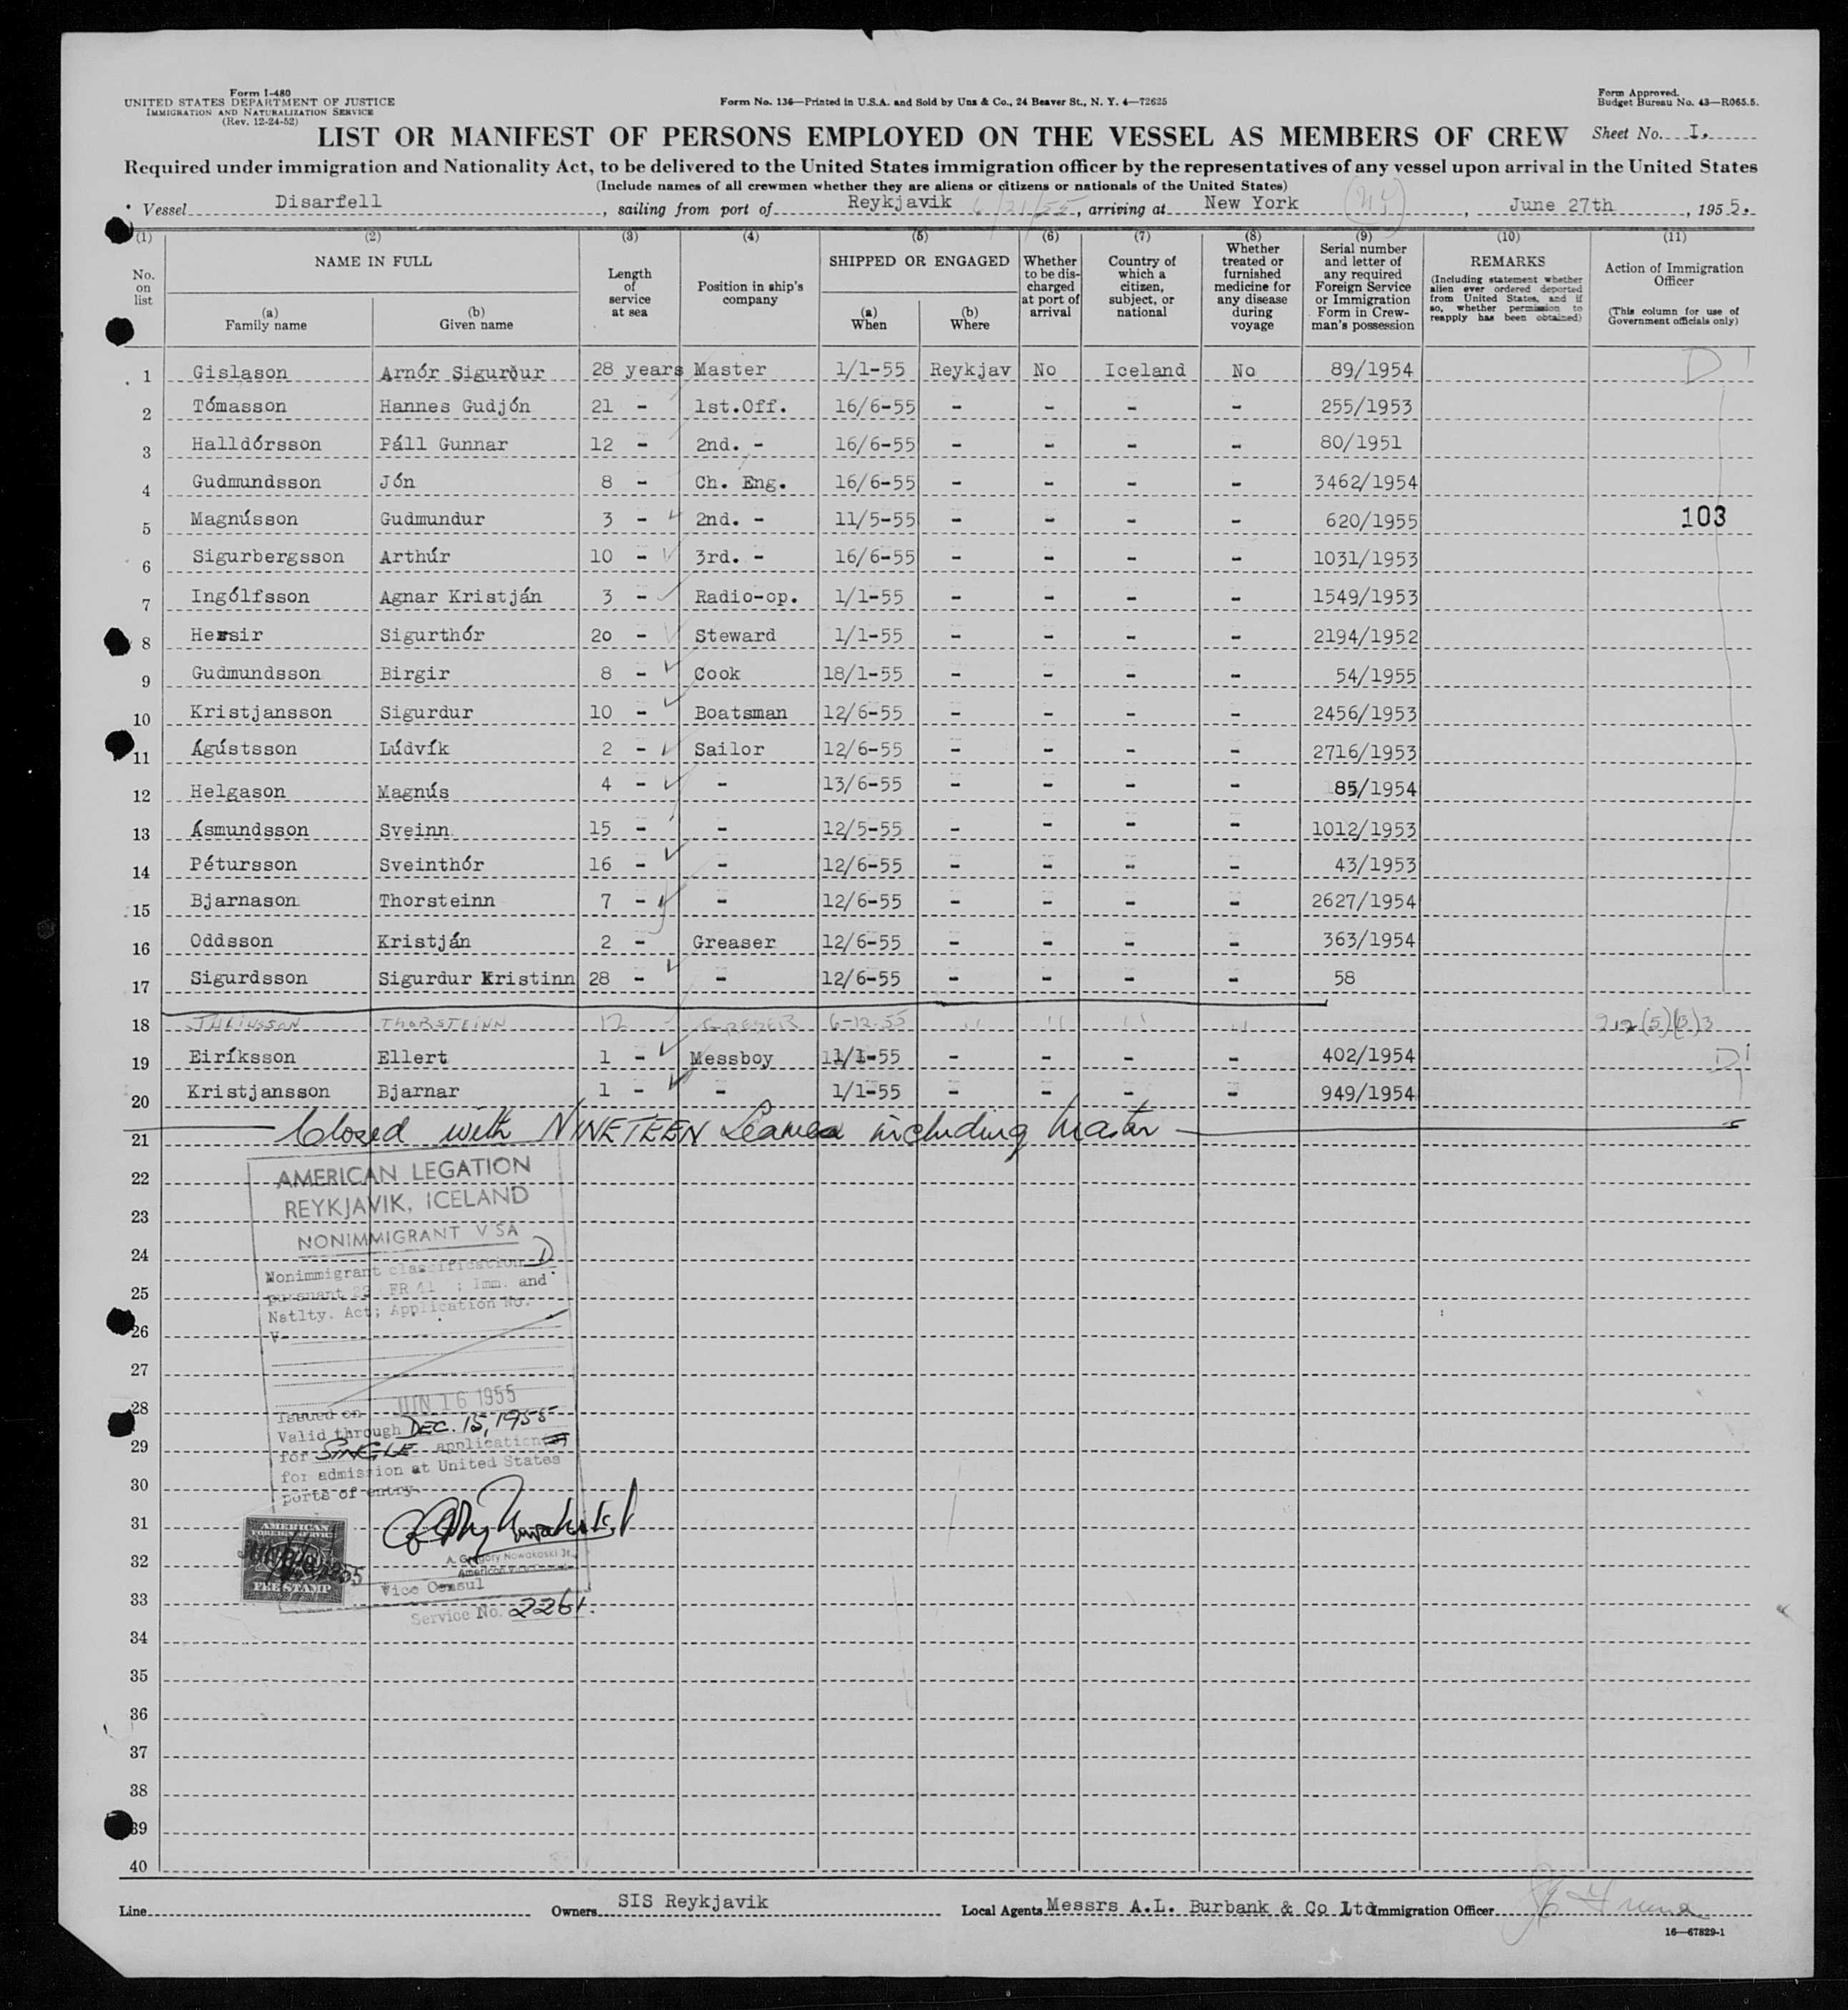 Form I-480
UNITED STATES DEPARTMENT OF JUSTICE
IMMIGRATION AND NATURALIZATION SERVICE
(Rev. 12-24-52)
Form No. 136—Printed in U.S.A. and Sold by Unz & Co., 24 Beaver St., N. Y. 4—72625
Form Approved.
Budget Bureau No. 43—R065.5.
LIST OR MANIFEST OF PERSONS EMPLOYED ON THE VESSEL AS MEMBERS OF CREW Sheet No. I.
Required under immigration and Nationality Act, to be delivered to the United States immigration officer by the representatives of any vessel upon arrival in the United States
(Include names of all crewmen whether they are aliens or citizens or nationals of the United States)
Vessel Disarfell, sailing from port of Reykjavik 6/21/55, arriving at New York (NY), June 27th, 1955.
(1) No. on list
(2) NAME IN FULL (a) Family name (b) Given name
(3) Length of service at sea
(4) Position in ship's company
(5) SHIPPED OR ENGAGED (a) When (b) Where
(6) Whether to be discharged at port of arrival
(7) Country of which a citizen, subject, or national
(8) Whether treated or furnished medicine for any disease during voyage
(9) Serial number and letter of any required Foreign Service or Immigration Form in Crewman's possession
(10) REMARKS (Including statement whether alien ever ordered deported from United States, and if so, whether permission to reapply has been obtained)
(11) Action of Immigration Officer (This column for use of Government officials only)
1 Gislason Arnór Sigurður 28 years Master 1/1-55 Reykjav No Iceland No 89/1954 D
2 Tómasson Hannes Gudjón 21 - 1st.Off. 16/6-55 - - - - 255/1953
3 Halldórsson Páll Gunnar 12 - 2nd. - 16/6-55 - - - - 80/1951
4 Gudmundsson Jón 8 - Ch. Eng. 16/6-55 - - - - 3462/1954
5 Magnússon Gudmundur 3 - 2nd. - 11/5-55 - - - - 620/1955 103
6 Sigurbergsson Arthúr 10 - 3rd. - 16/6-55 - - - - 1031/1953
7 Ingólfsson Agnar Kristján 3 - Radio-op. 1/1-55 - - - - 1549/1953
8 Hersir Sigurthór 20 - Steward 1/1-55 - - - - 2194/1952
9 Gudmundsson Birgir 8 - Cook 18/1-55 - - - - 54/1955
10 Kristjansson Sigurdur 10 - Boatsman 12/6-55 - - - - 2456/1953
11 Ágústsson Lúdvík 2 - Sailor 12/6-55 - - - - 2716/1953
12 Helgason Magnús 4 - - 13/6-55 - - - - 85/1954
13 Ásmundsson Sveinn 15 - - 12/5-55 - - - - 1012/1953
14 Pétursson Sveinthór 16 - - 12/6-55 - - - - 43/1953
15 Bjarnason Thorsteinn 7 - - 12/6-55 - - - - 2627/1954
16 Oddsson Kristján 2 - Greaser 12/6-55 - - - - 363/1954
17 Sigurdsson Sigurdur Kristinn 28 - - 12/6-55 - - - - 58
18 JULIUSSON THORSTEINN 12 - GREASER 6-12-55 " " " "
19 Eiríksson Ellert 1 - Messboy 11/1-55 - - - - 402/1954 D
20 Kristjansson Bjarnar 1 - - 1/1-55 - - - - 949/1954
21 Closed with NINETEEN including Master
22
23
24
25
26
27
28
29
30
31
32
33
34
35
36
37
38
39
40
AMERICAN LEGATION
REYKJAVIK, ICELAND
NONIMMIGRANT VISA
Nonimmigrant classification D
pursuant 22 CFR 41 ; Imm. and
Natlty. Act; Application No.
V-
Issued on JUN 16 1955
Valid through DEC. 15, 1955
for SINGLE applications
for admission at United States
ports of entry.
A. Gregory Nowakoski Jr.
American Vice Consul
Vice Consul
Service No. 2261.
AMERICAN
FOREIGN SERVICE
FEE STAMP
Line Owners SIS Reykjavik Local Agents Messrs A.L. Burbank & Co Ltd Immigration Officer
16—67829-1